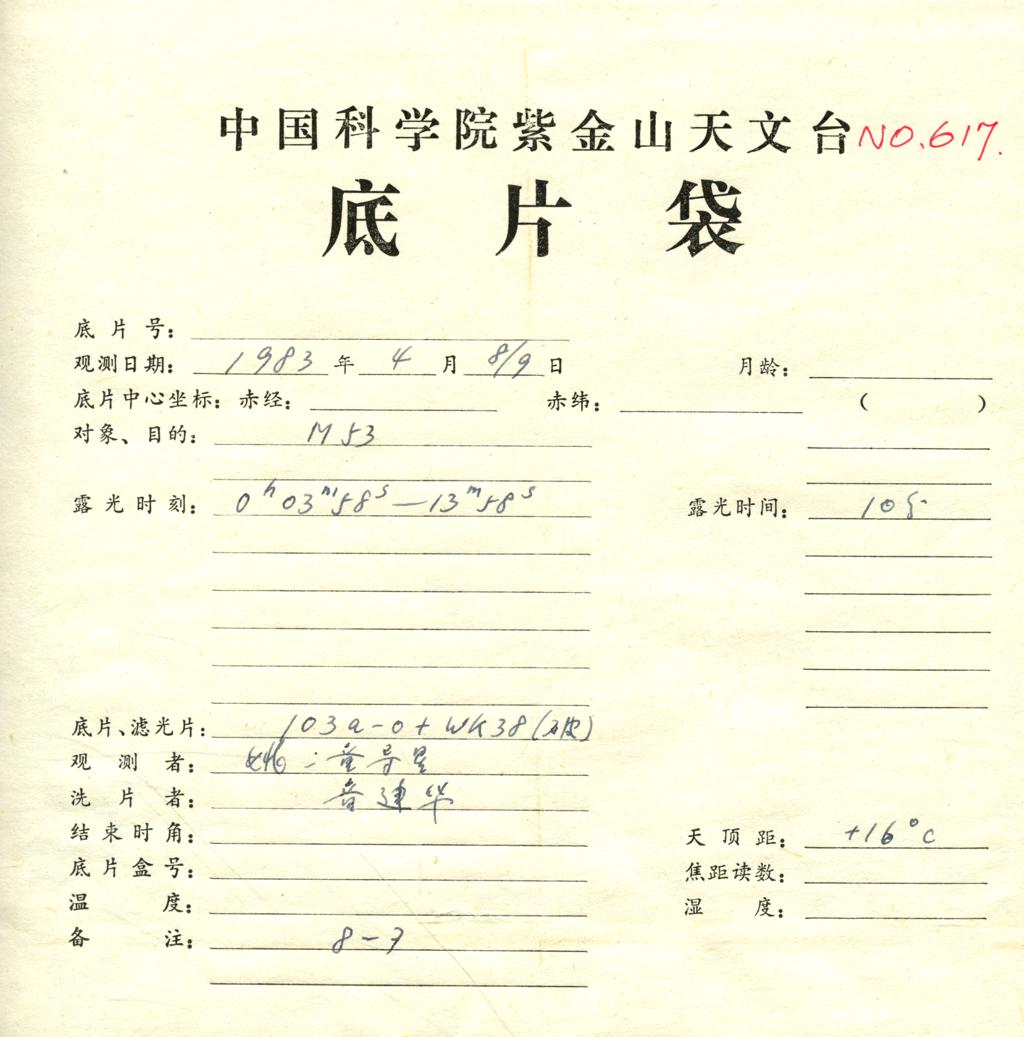 中国科学院紫金山天文台 NO.617.
底片袋
底片号：
观测日期：1983年4月8/9日 月龄：
底片中心坐标：赤经： 赤纬： （ ）
对象、目的：M53
露光时刻：0h03m58s—13m58s 露光时间：10分
底片、滤光片：103a-O+WK38
观测者：导星
洗片者：建华
结束时角： 天顶距：+16°C
底片盒号： 焦距读数：
温度： 湿度：
备注：8-7